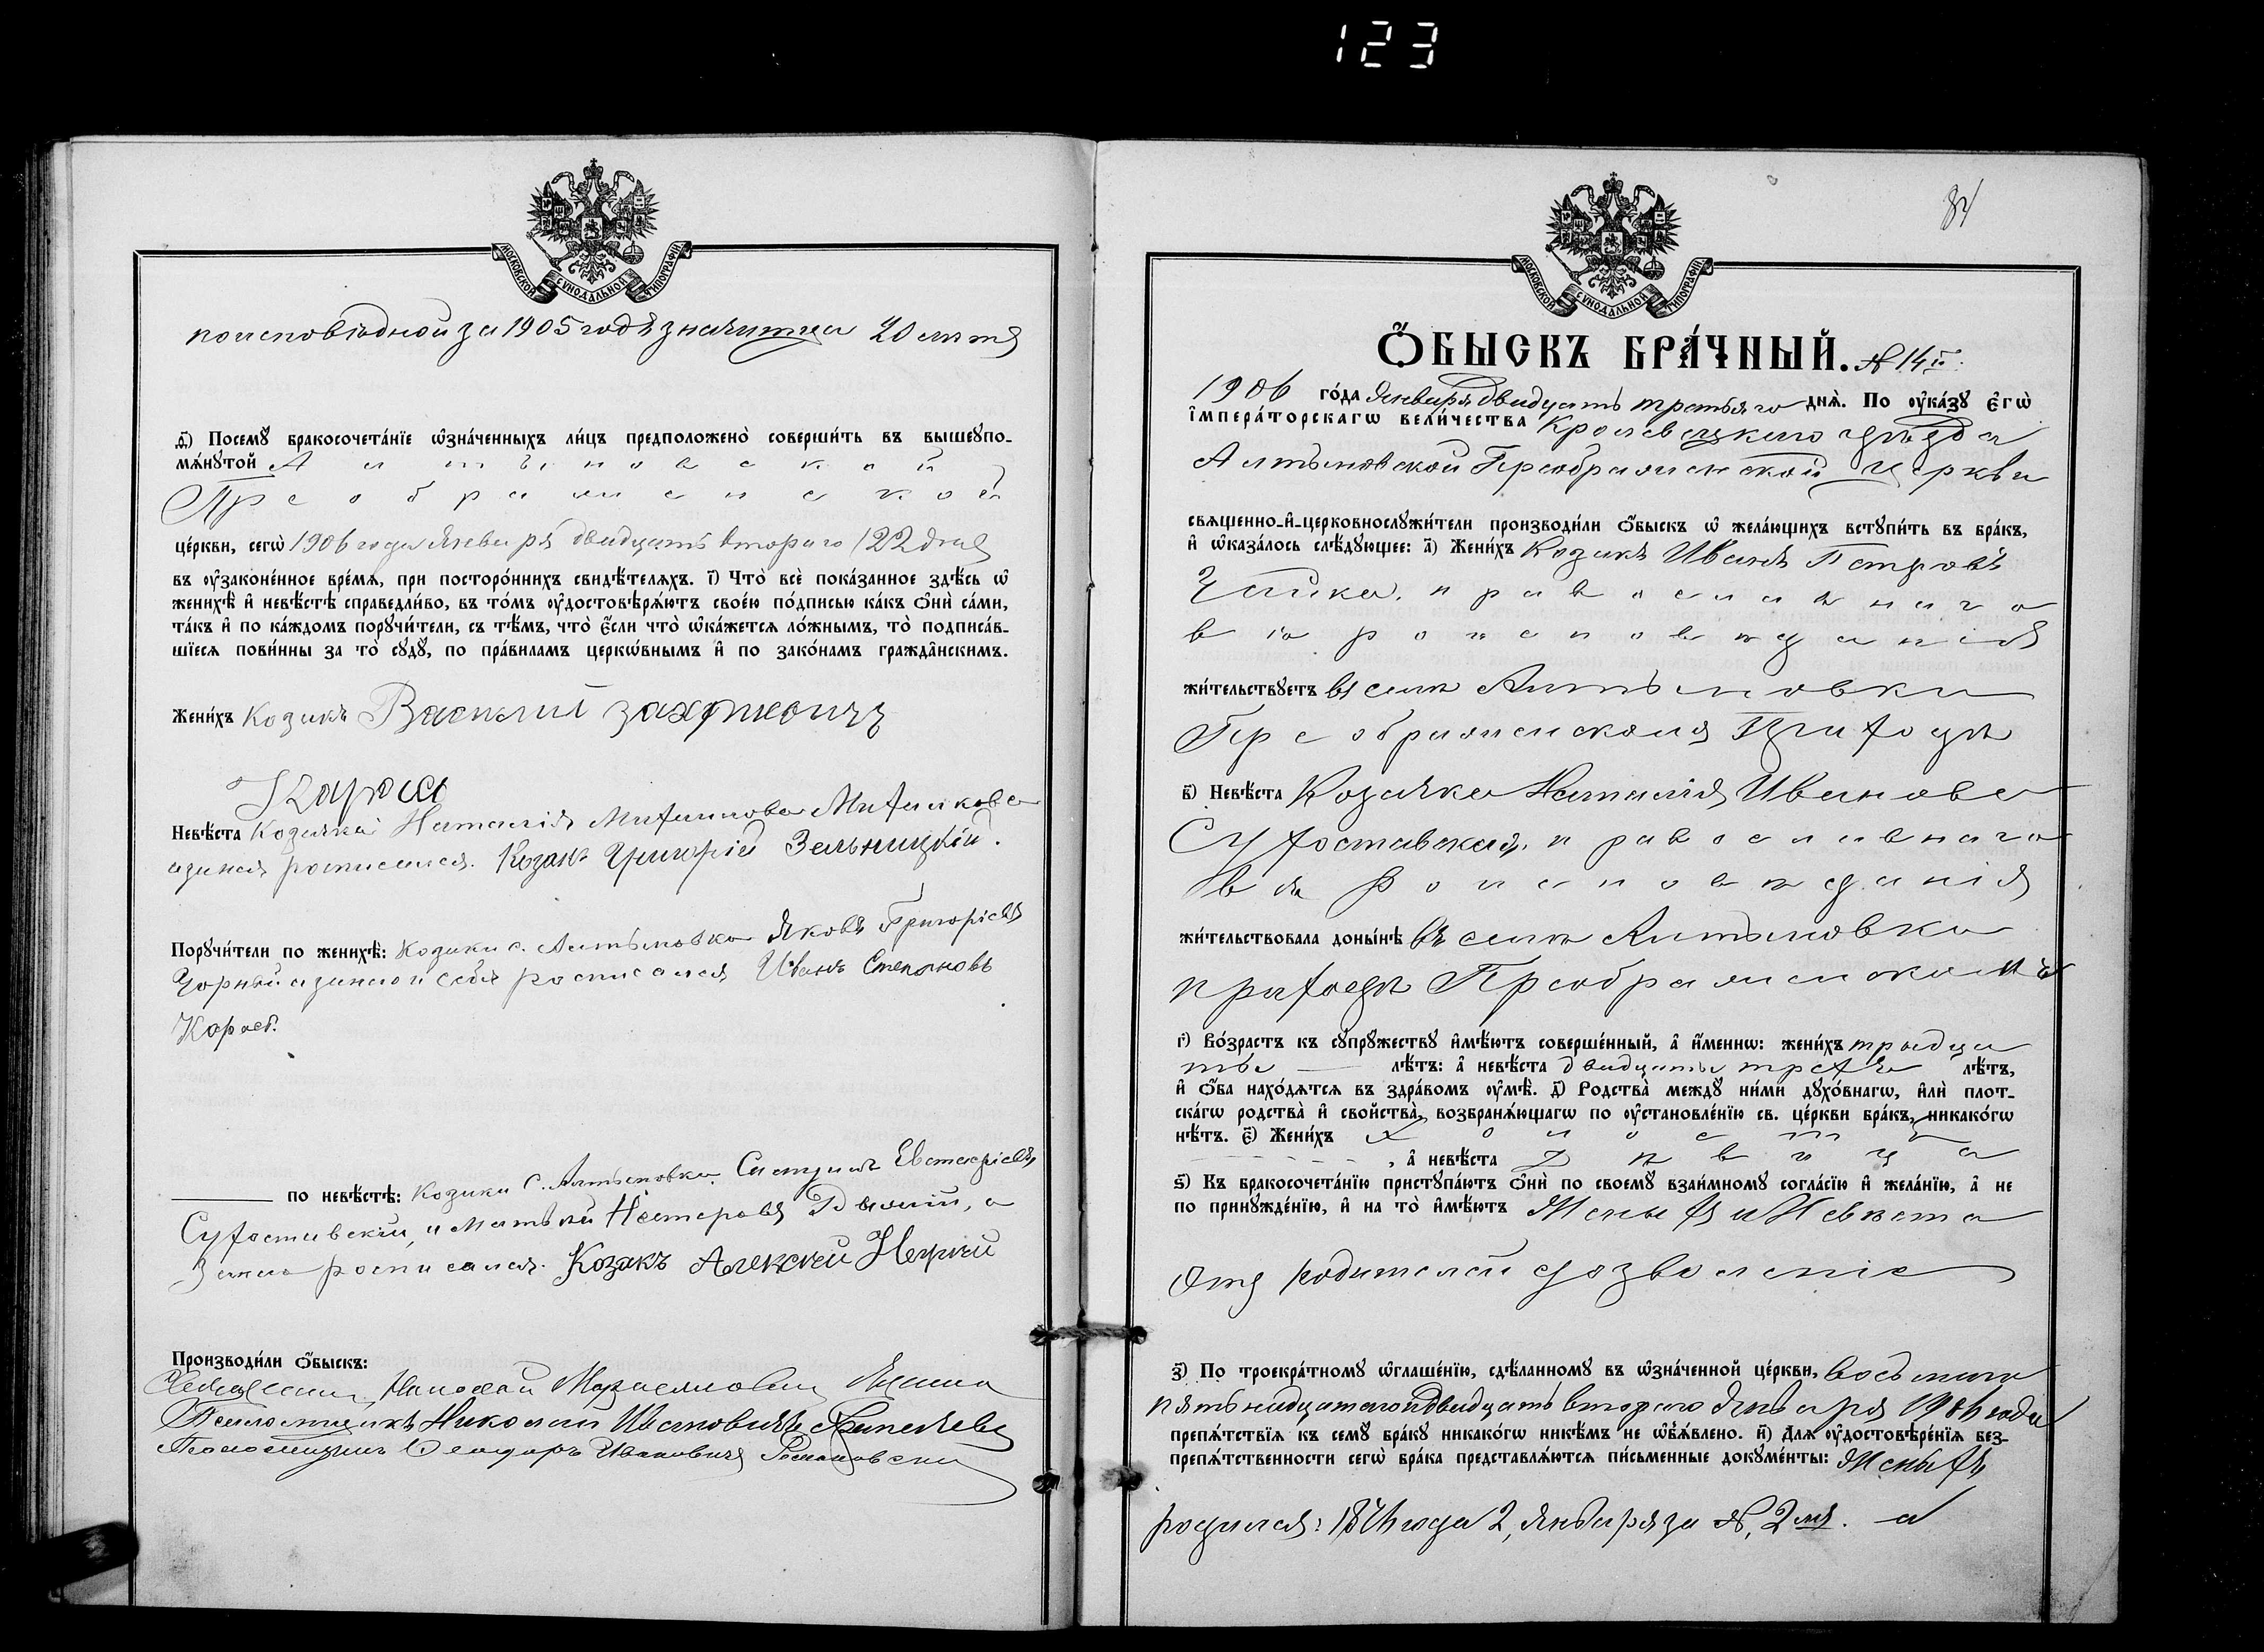 123
МОСКОВСКОЙ СѴНОДАЛЬНОЙ ТИПОГРАФІИ
поисповѣдной за 1905 годъ значитця 20 лѣтъ
ѳ҃) Посемꙋ бракосочета́нїе ѡ҆зна́ченныхъ ли́цъ предположено̀ соверши́ть въ вышеꙋпо-
мѧ́нꙋтой Алтыновской
Преображенской
це́ркви, сегѡ̀ 1906 года Января двадцать втораго /22 дня
въ ᲂу҆законе́нное вре́мѧ, при посторо́ннихъ свидѣ́телѧхъ. і҃) Что̀ всѐ пока́занное здѣ́сь ѡ҆
женихѣ̀ и҆ невѣ́стѣ справедли́во, въ то́мъ ᲂу҆достовѣрѧ́ютъ свое́ю по́дписью ка́къ ѻ҆нѝ са́ми,
та́къ и҆ по ка́ждомъ порꙋчи́тели, съ тѣ́мъ, что̀ є҆́сли что̀ ѡ҆ка́жетсѧ ло́жнымъ, то̀ подписа́в-
шїесѧ пови́нны за то̀ сꙋдꙋ̀, по пра́виламъ церкѡ́внымъ и҆ по зако́намъ гражда̂нскимъ.
Жени́хъ Козакъ Василий
Невѣ́ста Козачка Наталія
росписался. Козакъ Григорій Зельницкій.
Порꙋчи́тели по женихѣ̀: Козаки с. Алтыновки Яковъ Григоріевъ
Чорный а за него и себя росписался Иванъ Степановъ
по невѣ́стѣ: Козаки с. Алтыновки
Сухоставскій, и Матвей Несторовъ
росписался. Козакъ Алексей
Произво́ди́ли ѻ҆́быскъ:
Священникъ Николай
Псаломщикъ Николай Ивановичъ
Псаломщикъ Феодоръ Ивановичъ
МОСКОВСКОЙ СѴНОДАЛЬНОЙ ТИПОГРАФІИ
Ѻ҆́БЫСКЪ БРА́ЧНЫЙ. № 14й
1906 го́да Января двадцать третьяго днѧ̀. По ᲂу҆ка́зꙋ є҆гѡ̀
і҆мпера́торскагѡ вели́чества Кролевецкаго уѣзда
Алтыновской Преображенской Церкви
свѧще́нно-и҆-церковнослꙋжи́тели производи́ли ѻ҆́быскъ ѡ҆ жела́ющихъ встꙋпи́ть въ бра́къ,
и҆ ѡ҆каза́лось слѣ́дꙋющее: а҃) Жени́хъ Козакъ Иванъ Петровъ
Чайка, православнаго
вѣроисповѣданія
жи́тельствꙋетъ въ селѣ Алтыновки
Преображенскомъ Приходѣ
в҃) Невѣ́ста Козачка Наталія Иванова
Сухоставская, православнаго
вѣроисповѣданія
жи́тельствовала доны́нѣ въ селѣ Алтыновки
приходѣ Преображенскомъ
г҃) Во́зрастъ къ сꙋпрꙋ́жествꙋ и҆мѣ́ютъ соверше́нный, а҆ и҆́меннѡ: жени́хъ тридца
ть лѣ́тъ: а҆ невѣ́ста двадцать трехъ лѣ́тъ,
и҆ ѻ҆́ба нахо́дѧтсѧ въ здра́вомъ ᲂу҆мѣ̀. д҃) Родства̀ междꙋ̀ ни́ми дꙋхо́внагѡ, и҆лѝ плот-
ска́гѡ родства̀ и҆ сво́йства̀, возбранѧ́ющагѡ по ᲂу҆становле́нїю св. це́ркви бра́къ, никако́гѡ
нѣ́тъ. є҃) Жени́хъ холостъ
, а҆ невѣ́ста дѣвица
ѕ҃) Къ бракосочета́нїю пристꙋпа́ютъ ѻ҆нѝ по своемꙋ̀ взаи́мномꙋ согла́сїю и҆ жела́нїю, а҆ не
по принꙋжде́нїю, и҆ на то̀ и҆мѣ́ютъ Женихъ и Невѣста
Отъ родителей дозволеніе
з҃) По троекра́тномꙋ ѡ҆глаше́нїю, сдѣ́ланномꙋ въ ѡ҆зна́ченной це́ркви, восьмаго
пятьнадцатаго и двадцать втораго Января 1906 года
препѧ́тствїѧ къ семꙋ̀ бра́кꙋ никако́гѡ никѣ́мъ не ѡ҆б̾ѧ́влено. и҃) Длѧ ᲂу҆достовѣре́нїѧ без-
препѧ́тственности сегѡ̀ бра́ка представлѧ́ютсѧ пи́сьменные докꙋме́нты: Женихъ
родился: года 2, января за №, 2мъ. а